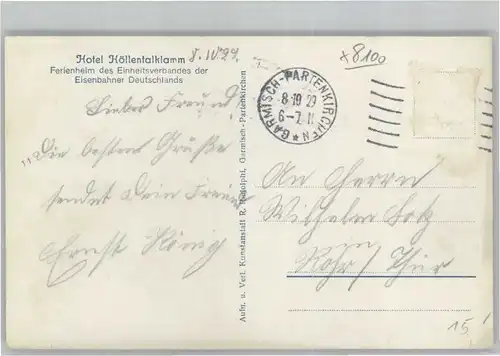 Hotel Höllentalklamm
8.IV 29.
Ferienheim des Einheitsverbandes der
Eisenbahner Deutschlands
Lieber Freund,
Die besten Grüße
sendet Dein Freund
Ernst König
Aufn. u. Verl. Kunstanstalt R. Rudolphi, Garmisch-Partenkirchen
GARMISCH-PARTENKIRCHEN
8.10 29
6-7 N
x8100
An Herrn
Wilhelm
in
Rohr/Thür
15